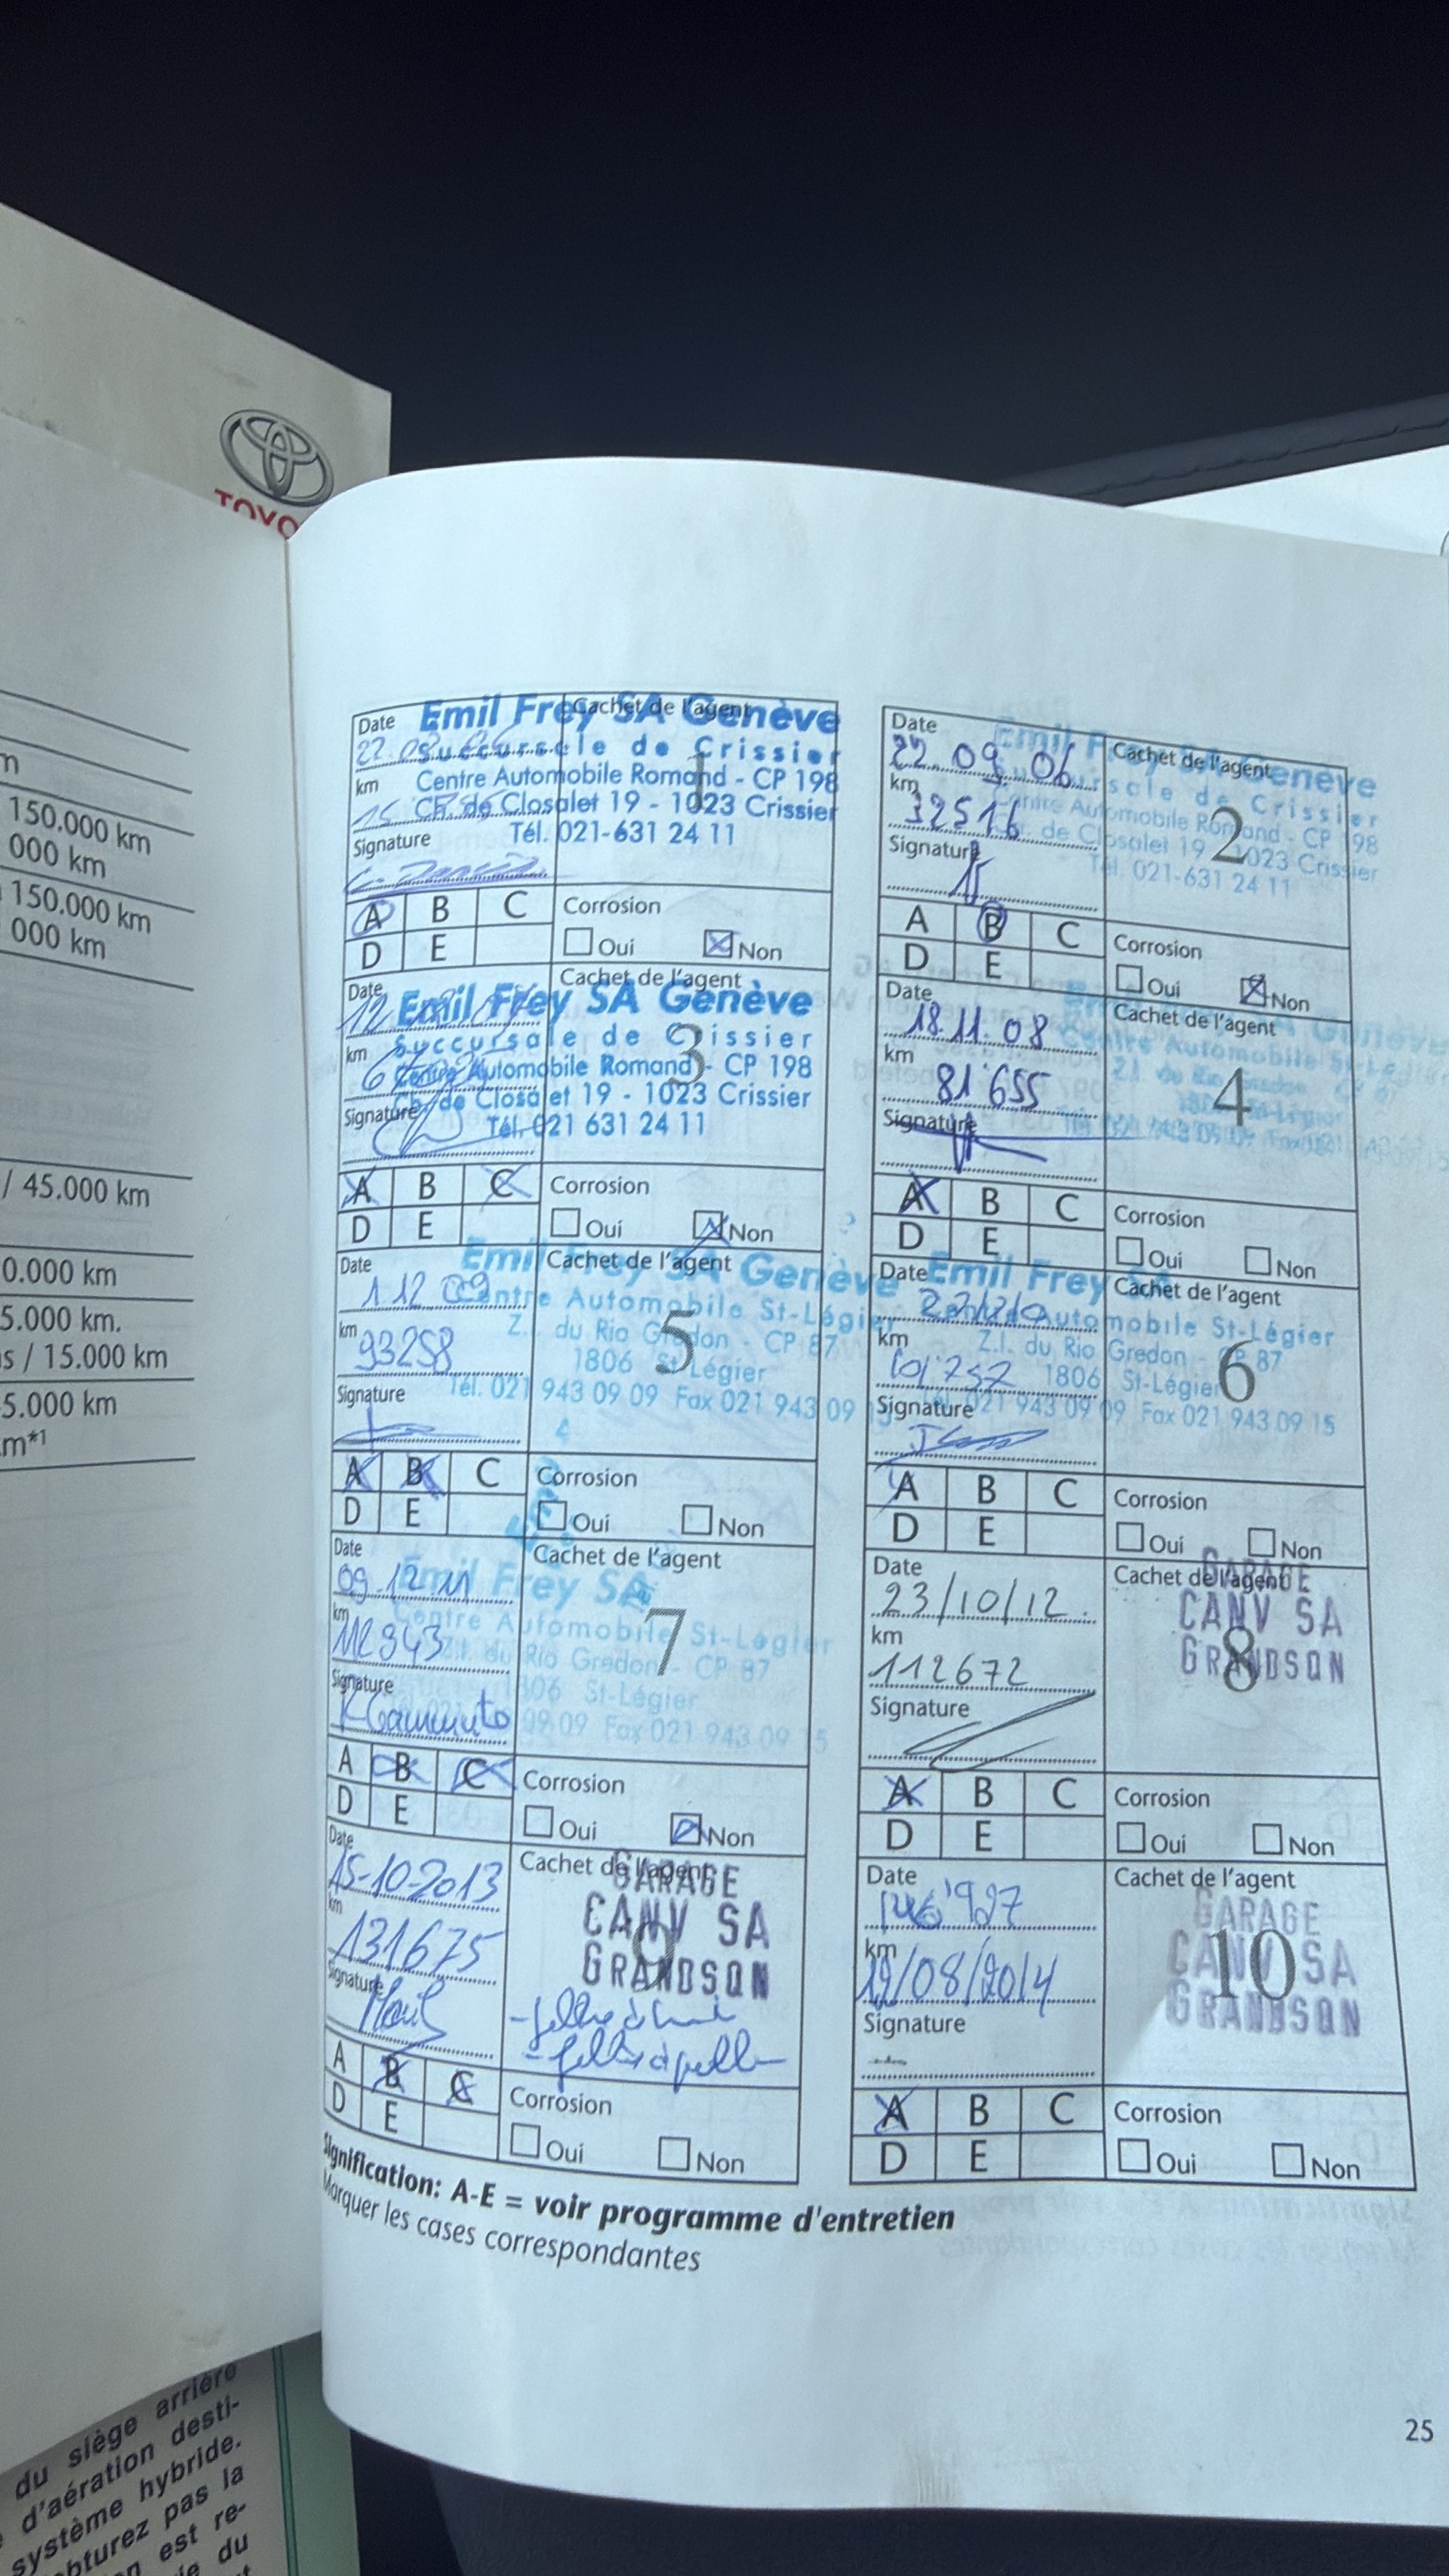 TOYO
m
150.000 km
000 km
150.000 km
000 km
/ 45.000 km
0.000 km
5.000 km.
s / 15.000 km
5.000 km
m*1
du siège arrière
d'aération desti-
système hybride.
obturez pas la
n est re-
du
Date
Cachet de l'agent
Emil Frey SA Genève
Succursale de Crissier
km
Centre Automobile Romand - CP 198
Ch. de Closalet 19 - 1023 Crissier
Signature
Tél. 021-631 24 11
1
A B C
D E
Corrosion
Oui Non
Date
22.09.06
Cachet de l'agent
Emil Frey SA Genève
Succursale de Crissier
km
32516
Centre Automobile Romand - CP 198
Ch. de Closalet 19 - 1023 Crissier
Signature
Tél. 021-631 24 11
2
A B C
D E
Corrosion
Oui Non
Date
Cachet de l'agent
Emil Frey SA Genève
Succursale de Crissier
km
Centre Automobile Romand - CP 198
Ch. de Closalet 19 - 1023 Crissier
Signature
Tél. 021 631 24 11
3
A B C
D E
Corrosion
Oui Non
Date
18.11.08
Cachet de l'agent
km
81'655
Signature
4
A B C
D E
Corrosion
Oui Non
Date
1.12.09
Cachet de l'agent
Emil Frey SA Genève
Centre Automobile St-Légier
km
93258
Z.I. du Rio Gredon - CP 87
1806 St-Légier
Signature
Tél. 021 943 09 09 Fax 021 943 09 15
5
A B C
D E
Corrosion
Oui Non
Date
Cachet de l'agent
Emil Frey SA
Centre Automobile St-Légier
km
101'757
Z.I. du Rio Gredon - CP 87
1806 St-Légier
Signature
Tél. 021 943 09 09 Fax 021 943 09 15
6
A B C
D E
Corrosion
Oui Non
Date
09.12.11
Cachet de l'agent
Emil Frey SA
Centre Automobile St-Légier
km
112343
Z.I. du Rio Gredon - CP 87
1806 St-Légier
Signature
09 09 Fax 021 943 09 15
7
A B C
D E
Corrosion
Oui Non
Date
23/10/12
Cachet de l'agent
GARAGE
CANV SA
GRANDSON
km
112672
Signature
8
A B C
D E
Corrosion
Oui Non
Date
15-10-2013
Cachet de l'agent
GARAGE
CANV SA
GRANDSON
km
131675
Signature
9
A B C
D E
Corrosion
Oui Non
Date
146'927
Cachet de l'agent
GARAGE
CANV SA
GRANDSON
km
19/08/2014
Signature
10
A B C
D E
Corrosion
Oui Non
Signification: A-E = voir programme d'entretien
Marquer les cases correspondantes
25